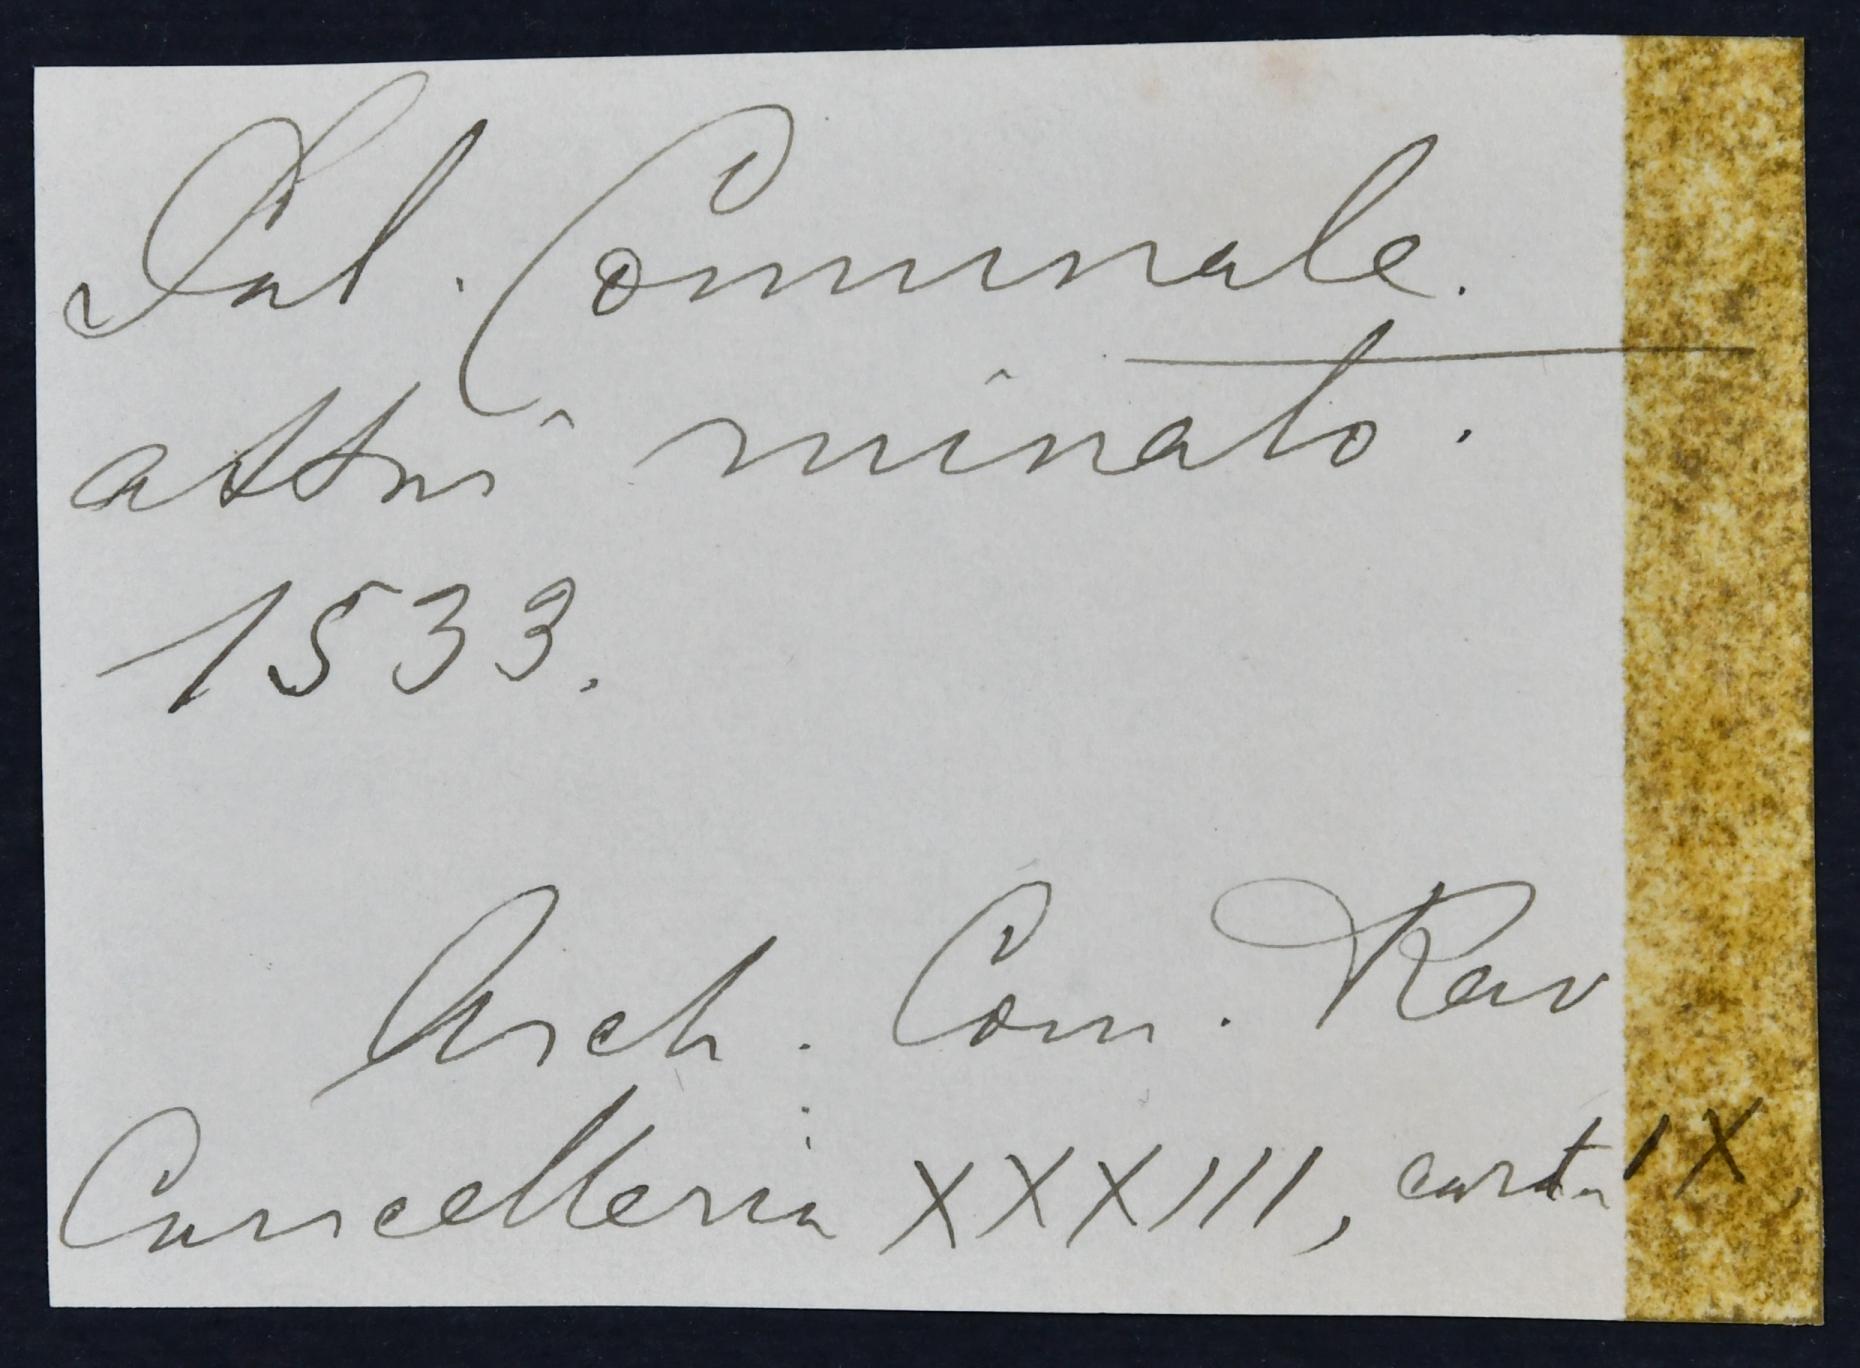 Pal. Comunale.
attri minato.
1533.
Arch. Com. Rav
Cancelleria XXXIII, carta IX,